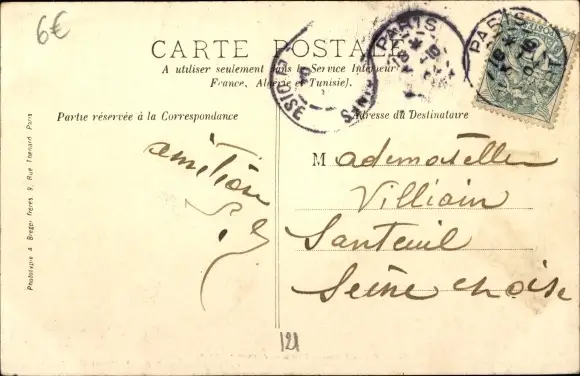 6€
CARTE POSTALE
A utiliser seulement dans le Service Intérieur
France, Algérie et Tunisie).
PARIS
PARIS
Partie réservée à la Correspondance
Adresse du Destinataire
Mademoiselle
Villiain
Santeuil
Seine et oise
amition
Phototypie A Breger frères 9, Rue Thenard Paris
121